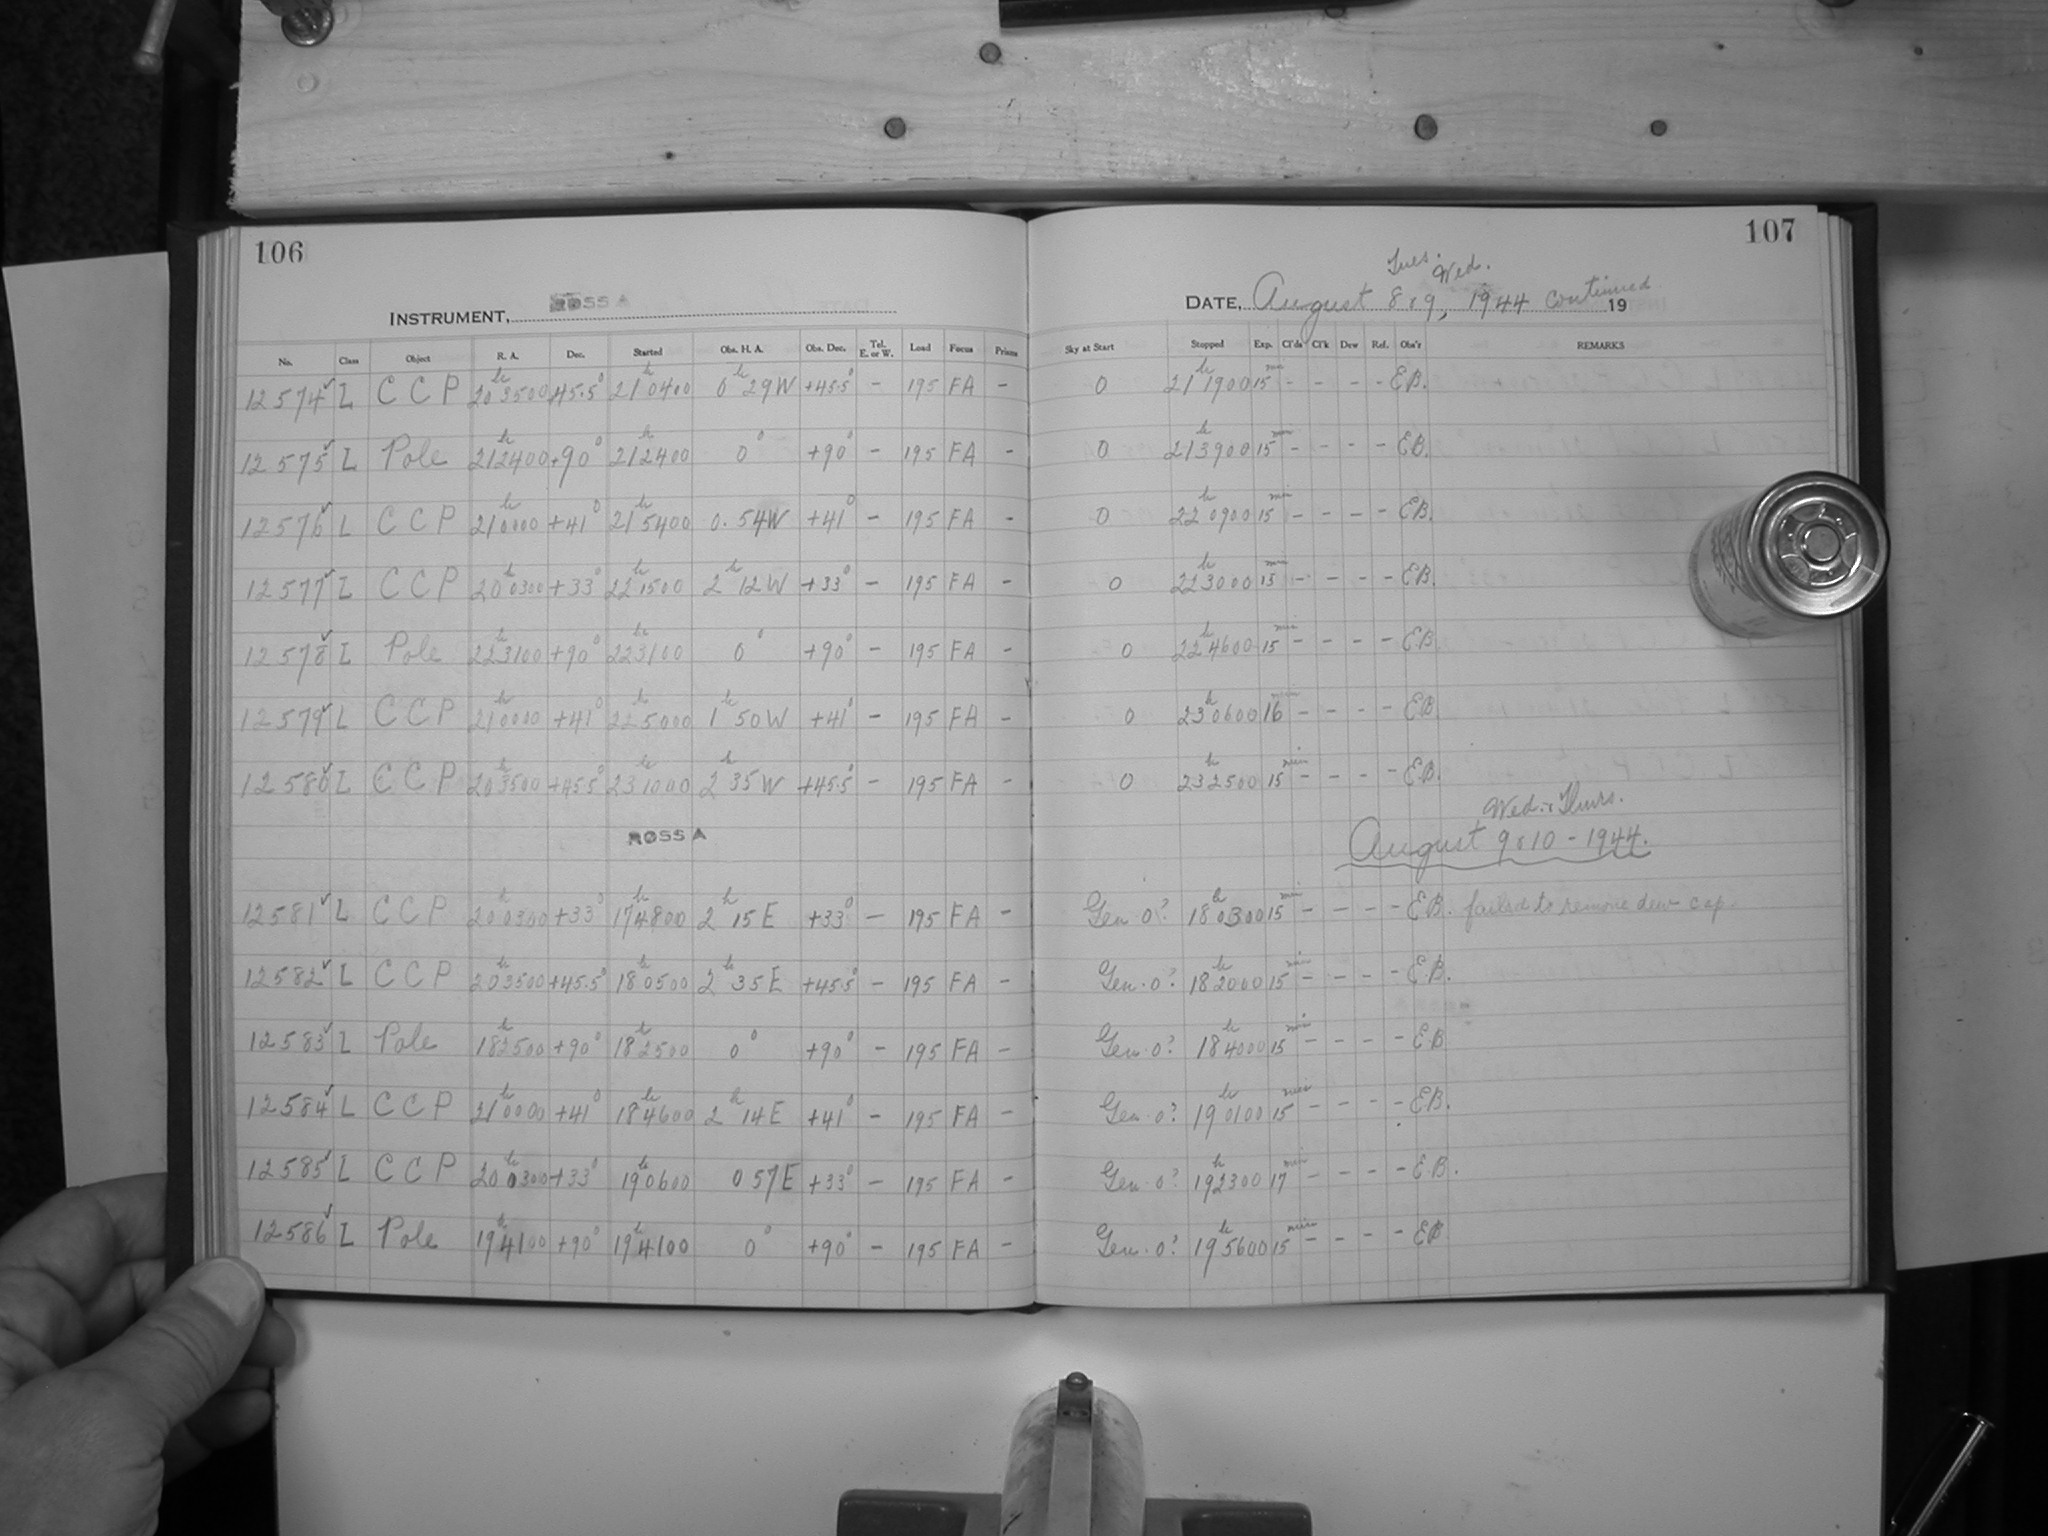 106
INSTRUMENT, ROSS A
No. Class Object R. A. Dec. Started Obs. H. A. Obs. Dec. Tel. E. or W. Load Focus Prisms
12574✓ L C C P 20h3500 +45.5° 21h0400 0h29W +45.5° - 195 FA -
12575✓ L Pole 21h2400 +90° 21h2400 0° +90° - 195 FA -
12576✓ L C C P 21h0000 +41° 21h5400 0.54W +41° - 195 FA -
12577✓ L C C P 20h0300 +33° 22h1500 2h12W +33° - 195 FA -
12578✓ L Pole 22h3100 +90° 22h3100 0° +90° - 195 FA -
12579✓ L C C P 21h0000 +41° 22h5000 1h50W +41° - 195 FA -
12580✓ L C C P 20h3500 +45.5° 23h1000 2h35W +45.5° - 195 FA -
ROSS A
12581✓ L C C P 20h0300 +33° 17h4800 2h15E +33° - 195 FA -
12582✓ L C C P 20h3500 +45.5° 18h0500 2h35E +45.5° - 195 FA -
12583✓ L Pole 18h2500 +90° 18h2500 0° +90° - 195 FA -
12584✓ L C C P 21h0000 +41° 18h4600 2h14E +41° - 195 FA -
12585✓ L C C P 20h0300 +33° 19h0600 057E +33° - 195 FA -
12586✓ L Pole 19h4100 +90° 19h4100 0° +90° - 195 FA -
107
Tues. Wed.
DATE, August 8&9, 1944 continued 19
Sky at Start Stopped Exp. Cl'ds Cl'k Dew Ref. Obs'r REMARKS
0 21h1900 15min - - - - EB.
0 21h3900 15min - - - - EB.
0 22h0900 15min - - - - EB.
0 22h3000 15min - - - - EB.
0 22h4600 15min - - - - EB
0 23h0600 16min - - - - EB
0 23h2500 15min - - - - EB.
Wed. & Thurs.
August 9&10 - 1944.
Gen. 0? 18h0300 15min - - - - EB. failed to remove dew cap.
Gen. 0? 18h2000 15min - - - - EB.
Gen. 0? 18h4000 15min - - - - EB
Gen. 0? 19h0100 15min - - - - EB.
Gen. 0? 19h2300 17min - - - - EB.
Gen. 0? 19h5600 15min - - - - EB